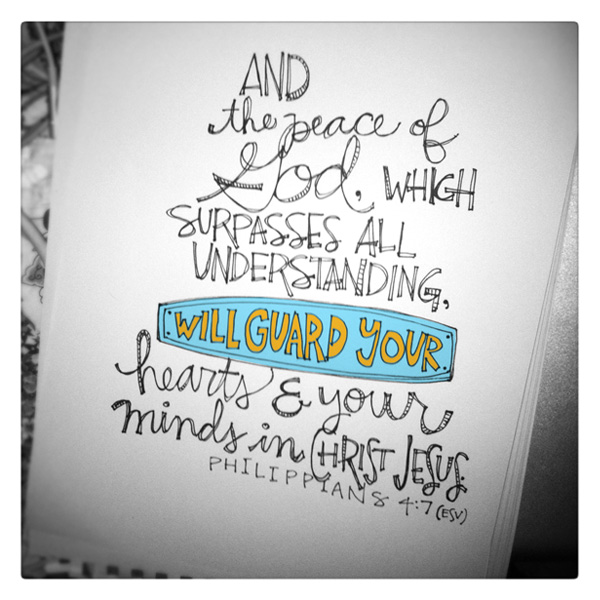 AND
the peace of
God, WHICH
SURPASSES ALL
UNDERSTANDING,
WILL GUARD YOUR
hearts & your
minds in CHRIST JESUS.
PHILIPPIANS 4:7 (ESV)